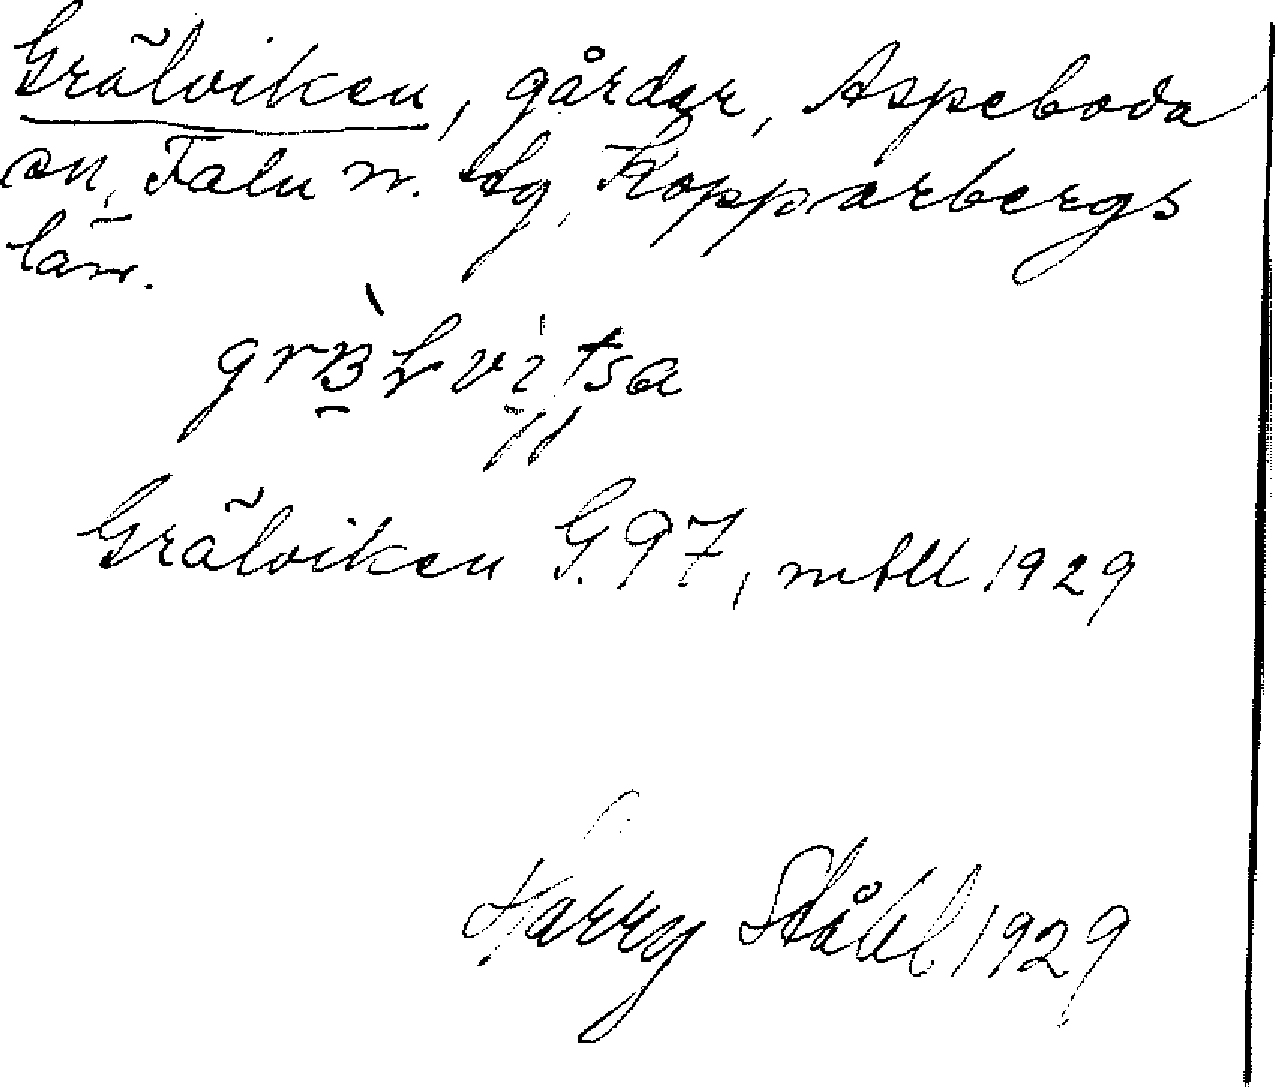 Grälviken, gårdar, Aspeboda
sn, Falu n. tg, Kopparbergs
län.
Grälviken G. 97, mbll 1929
Harry Ståhl 1929